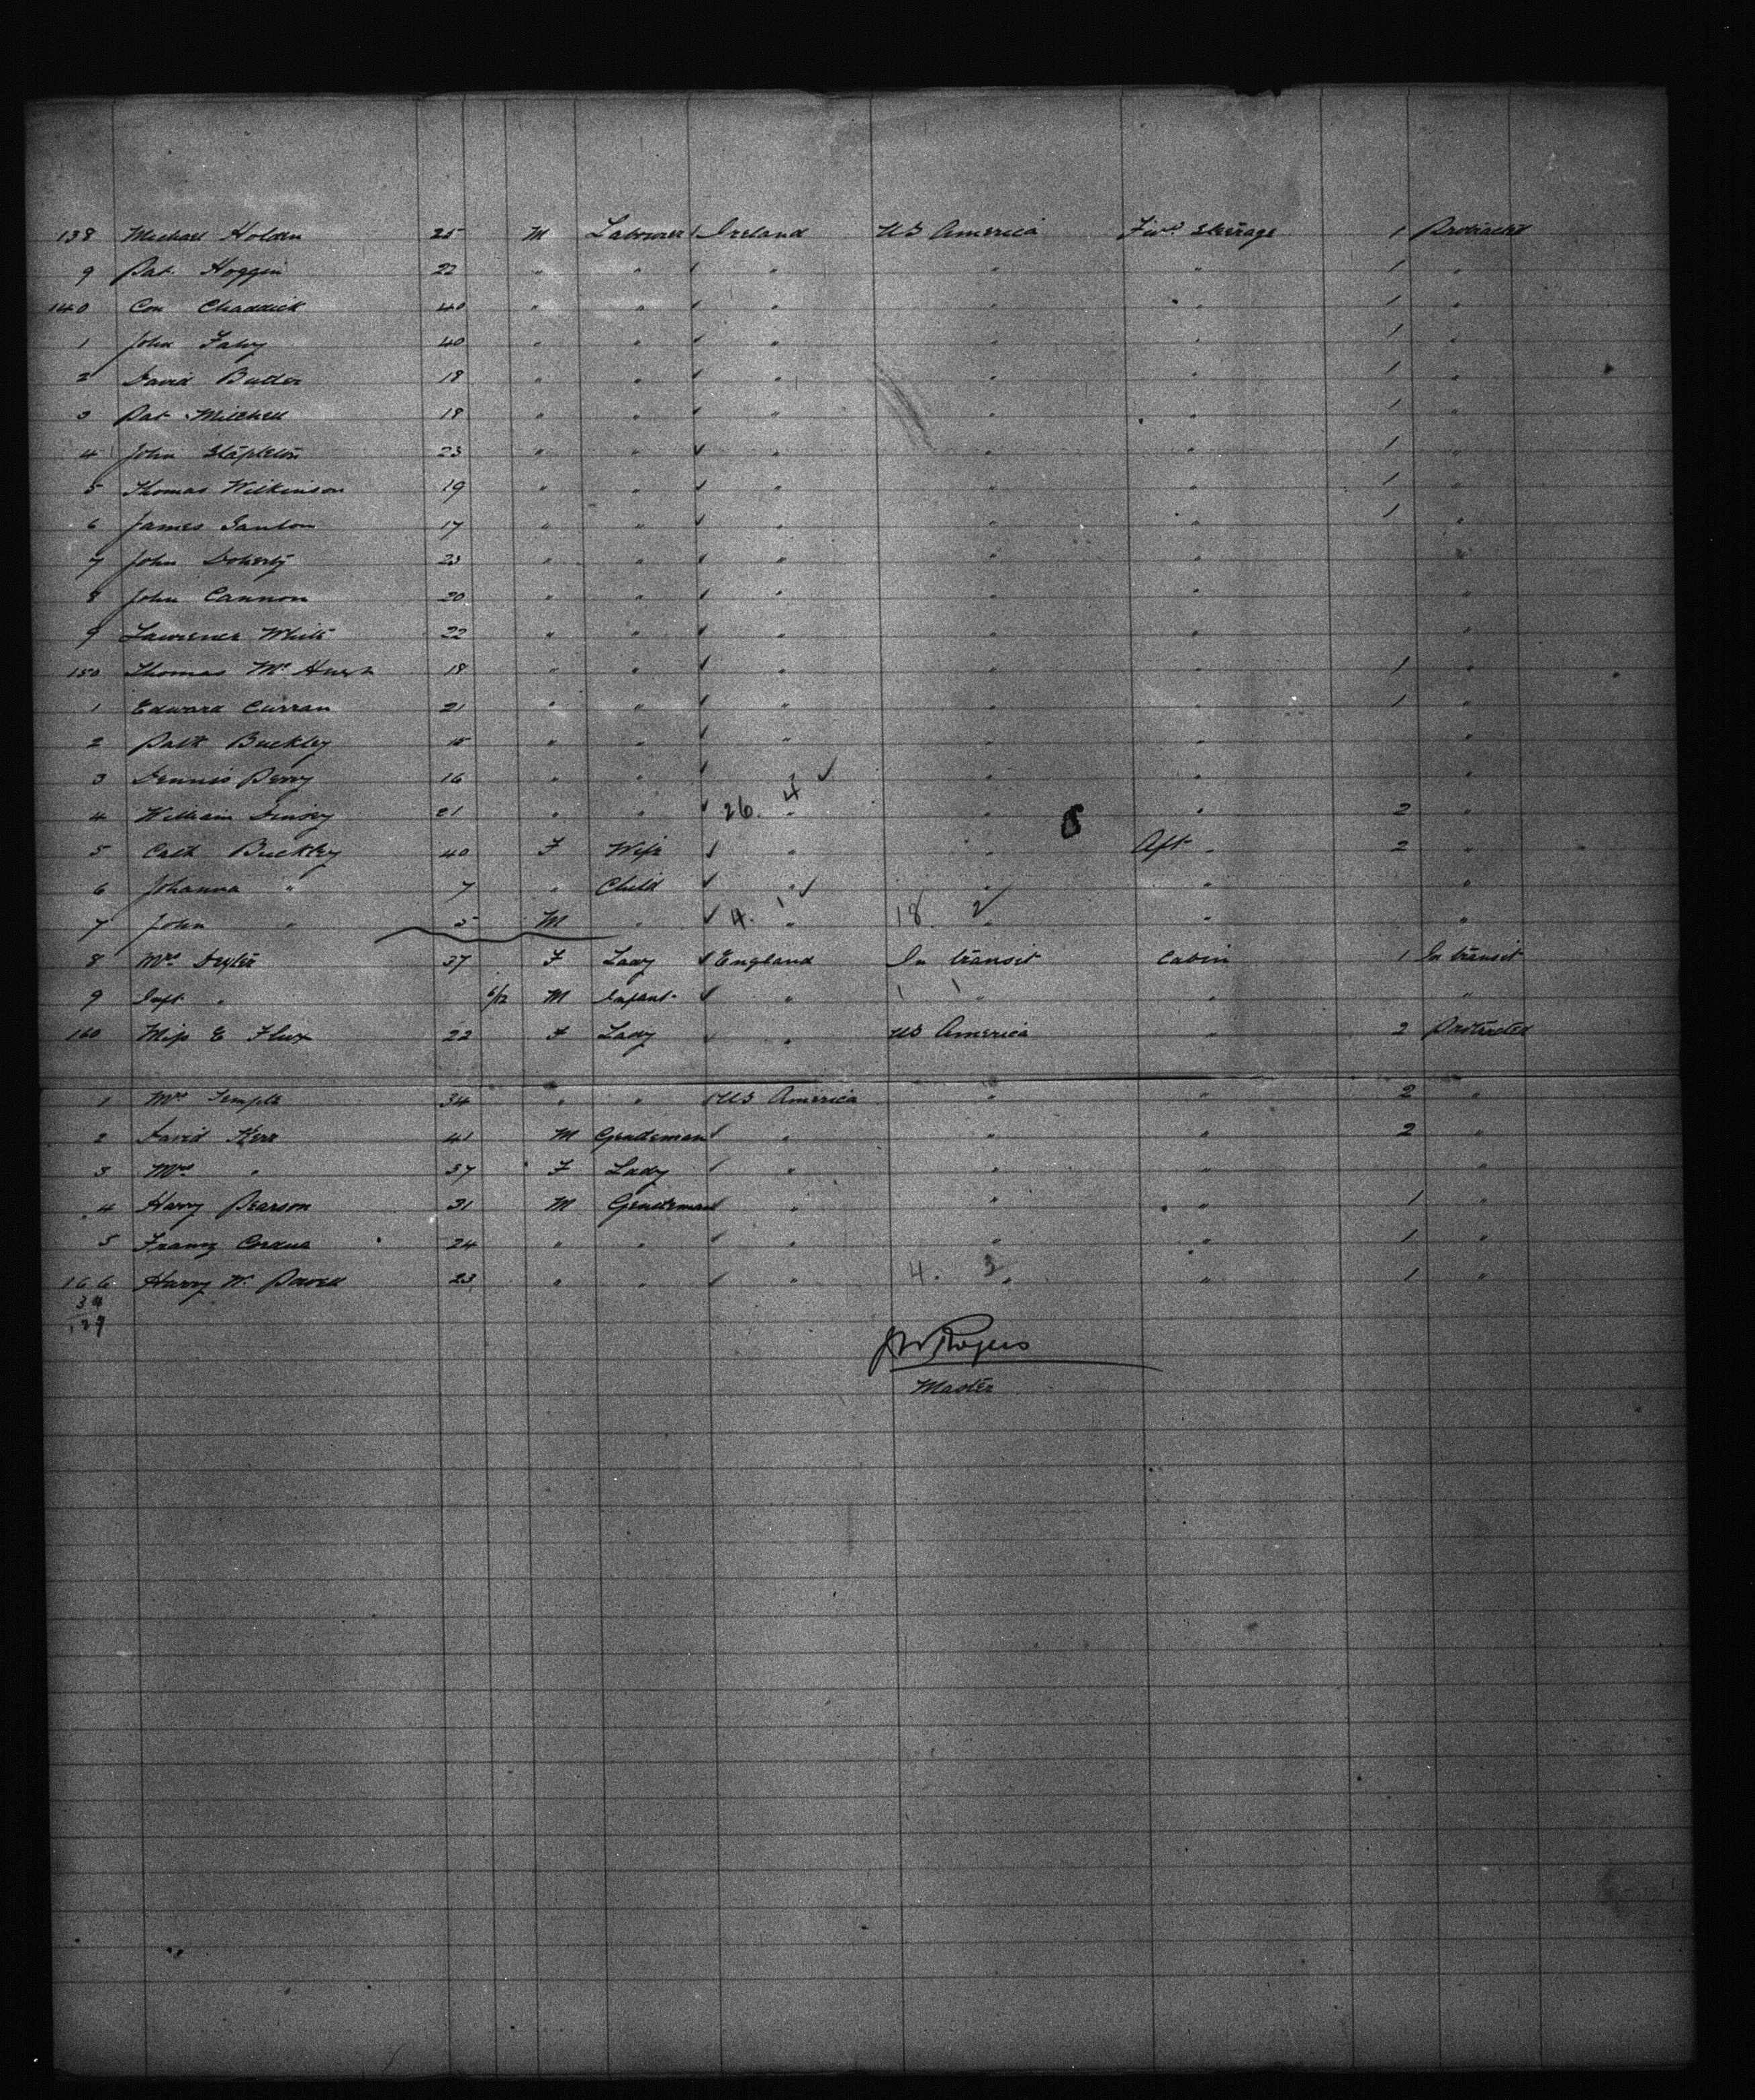 138 Michael Holden 25 M Labourer Ireland US America Fwd Steerage 1 Protracted
9 Pat. Hoggin 22 " " " " " 1 "
140 Con Chaddick 40 " " " " " 1 "
1 John Fahy 40 " " " " " 1 "
2 David Butler 18 " " " " " 1 "
3 Pat Mitchell 18 " " " " " 1 "
4 John Stapleton 23 " " " " " 1 "
5 Thomas Wilkinson 19 " " " " " 1 "
6 James 17 " " " " " 1 "
7 John Doherty 23 " " " " " "
8 John Cannon 20 " " " " " "
9 Lawrence White 22 " " " " " "
150 Thomas Mc 18 " " " " " 1 "
1 Edward Curran 21 " " " " " 1 "
2 Patk Buckley 15 " " " " " "
3 Dennis 16 " " " " " "
4 William 21 " " 26. 4 " " " 2 "
5 Cath Buckley 40 F Wife " " Aft " 2 "
6 Johanna " 7 " Child " " " "
7 John " 5 M " 4. 1 " 18 2 " " "
8 Mrs 37 F Lady England In transit Cabin 1 In transit
9 Inft " 6/12 M Infant " 1 1 " " "
160 Miss E Flux 22 F Lady " US America " 2 Protracted
1 Mrs Temple 34 " " US America " " 2 "
2 David Kerr 41 M Gentleman " " " 2 "
3 Mrs " 37 F Lady " " " "
4 Harry Pearson 31 M Gentleman " " " 1 "
5 Franz Cordua 24 " " " " " 1 "
166 Harry W. Powell 23 " " " 4. 3 " " 1 "
JW Rogers
Master